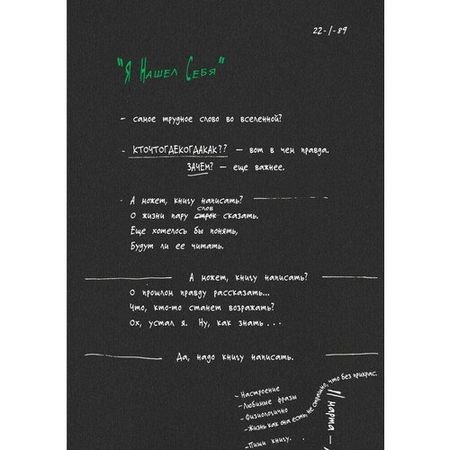 22-1-89
"Я Нашел Себя"
- самое трудное слово во вселенной?
- КТОЧТОГДЕКОГДАКАК?? — вот в чем правда.
ЗАЧЕМ? — еще важнее.
- А может, книгу написать?
слов
О жизни пару строк сказать.
Еще хотелось бы понять,
Будут ли ее читать.
А может, книгу написать?
О прошлом правду рассказать...
Что, кто-то станет возражать?
Ох, устал я. Ну, как знать...
Да, надо книгу написать.
- Настроение
- Любимые фразы
- Физиологично
- Жизнь как она есть, не стерильно, что без прикрас.
- Пиши книгу.
11 марта —